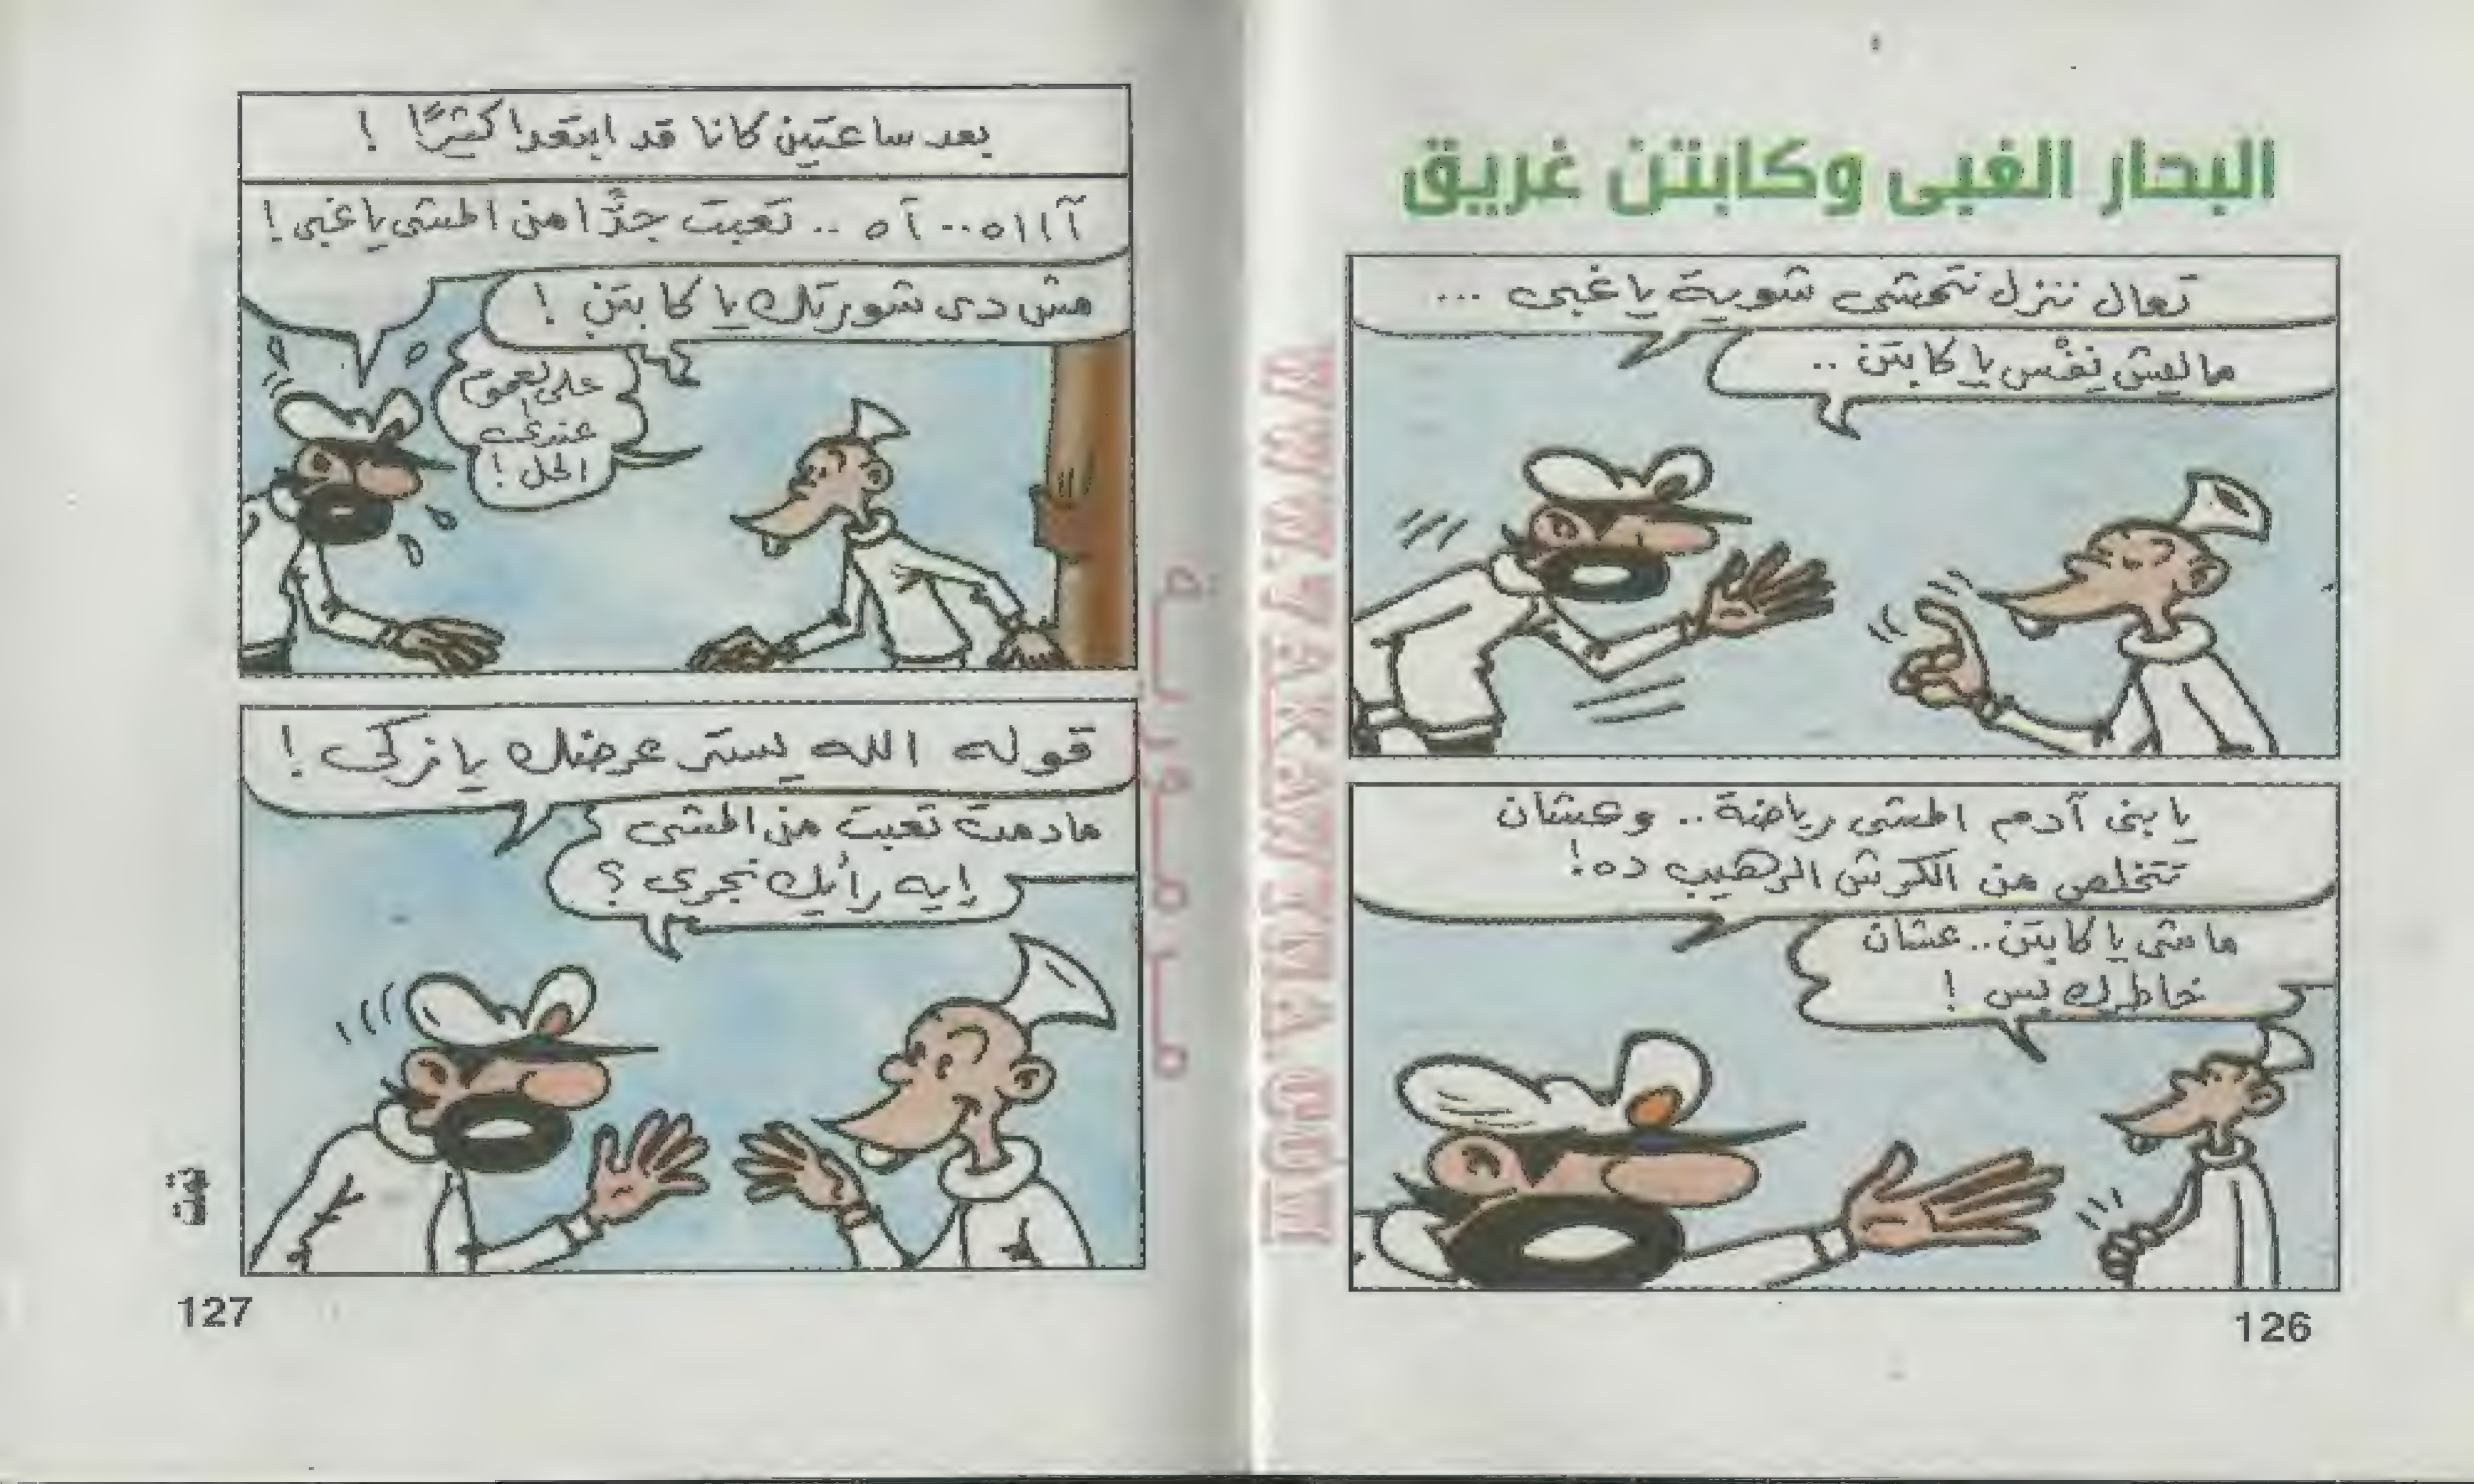 البحار الغبى وكابتن غريق
تعال ننزل نتمشى شوية يا غبى ...
ماليش نِفْس يا كابتن ..
يا بنى آدم المشى رياضة .. وعشان
تتخلص من الكرش الرهيب ده!
ماشى يا كابتن .. عشان
خاطرك بس !
126
بعد ساعتين كانا قد ابتعدا كثيرًا !
آااااه .. آه .. تعبت جدًّا من المشى يا غبى !
مش دى شورتك يا كابتن !
على لعموم
عندى
الحل !
قوله الله يستر عرضك يا زكى !
مادمت تعبت من المشى
إيه رأيك نجرى ؟
127
WWW.ZAKAWEYA.COM